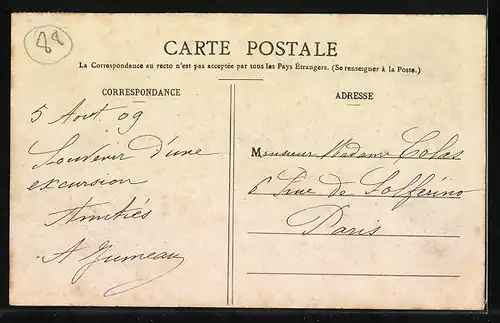 88
CARTE POSTALE
La Correspondance au recto n'est pas acceptée par tous les Pays Étrangers. (Se renseigner à la Poste.)
CORRESPONDANCE
5 Aout 09
Souvenir d'une
excursion
Amitiés
A Jumeau
ADRESSE
Monsieur Madame Colas
6 Rue de Solférino
Paris